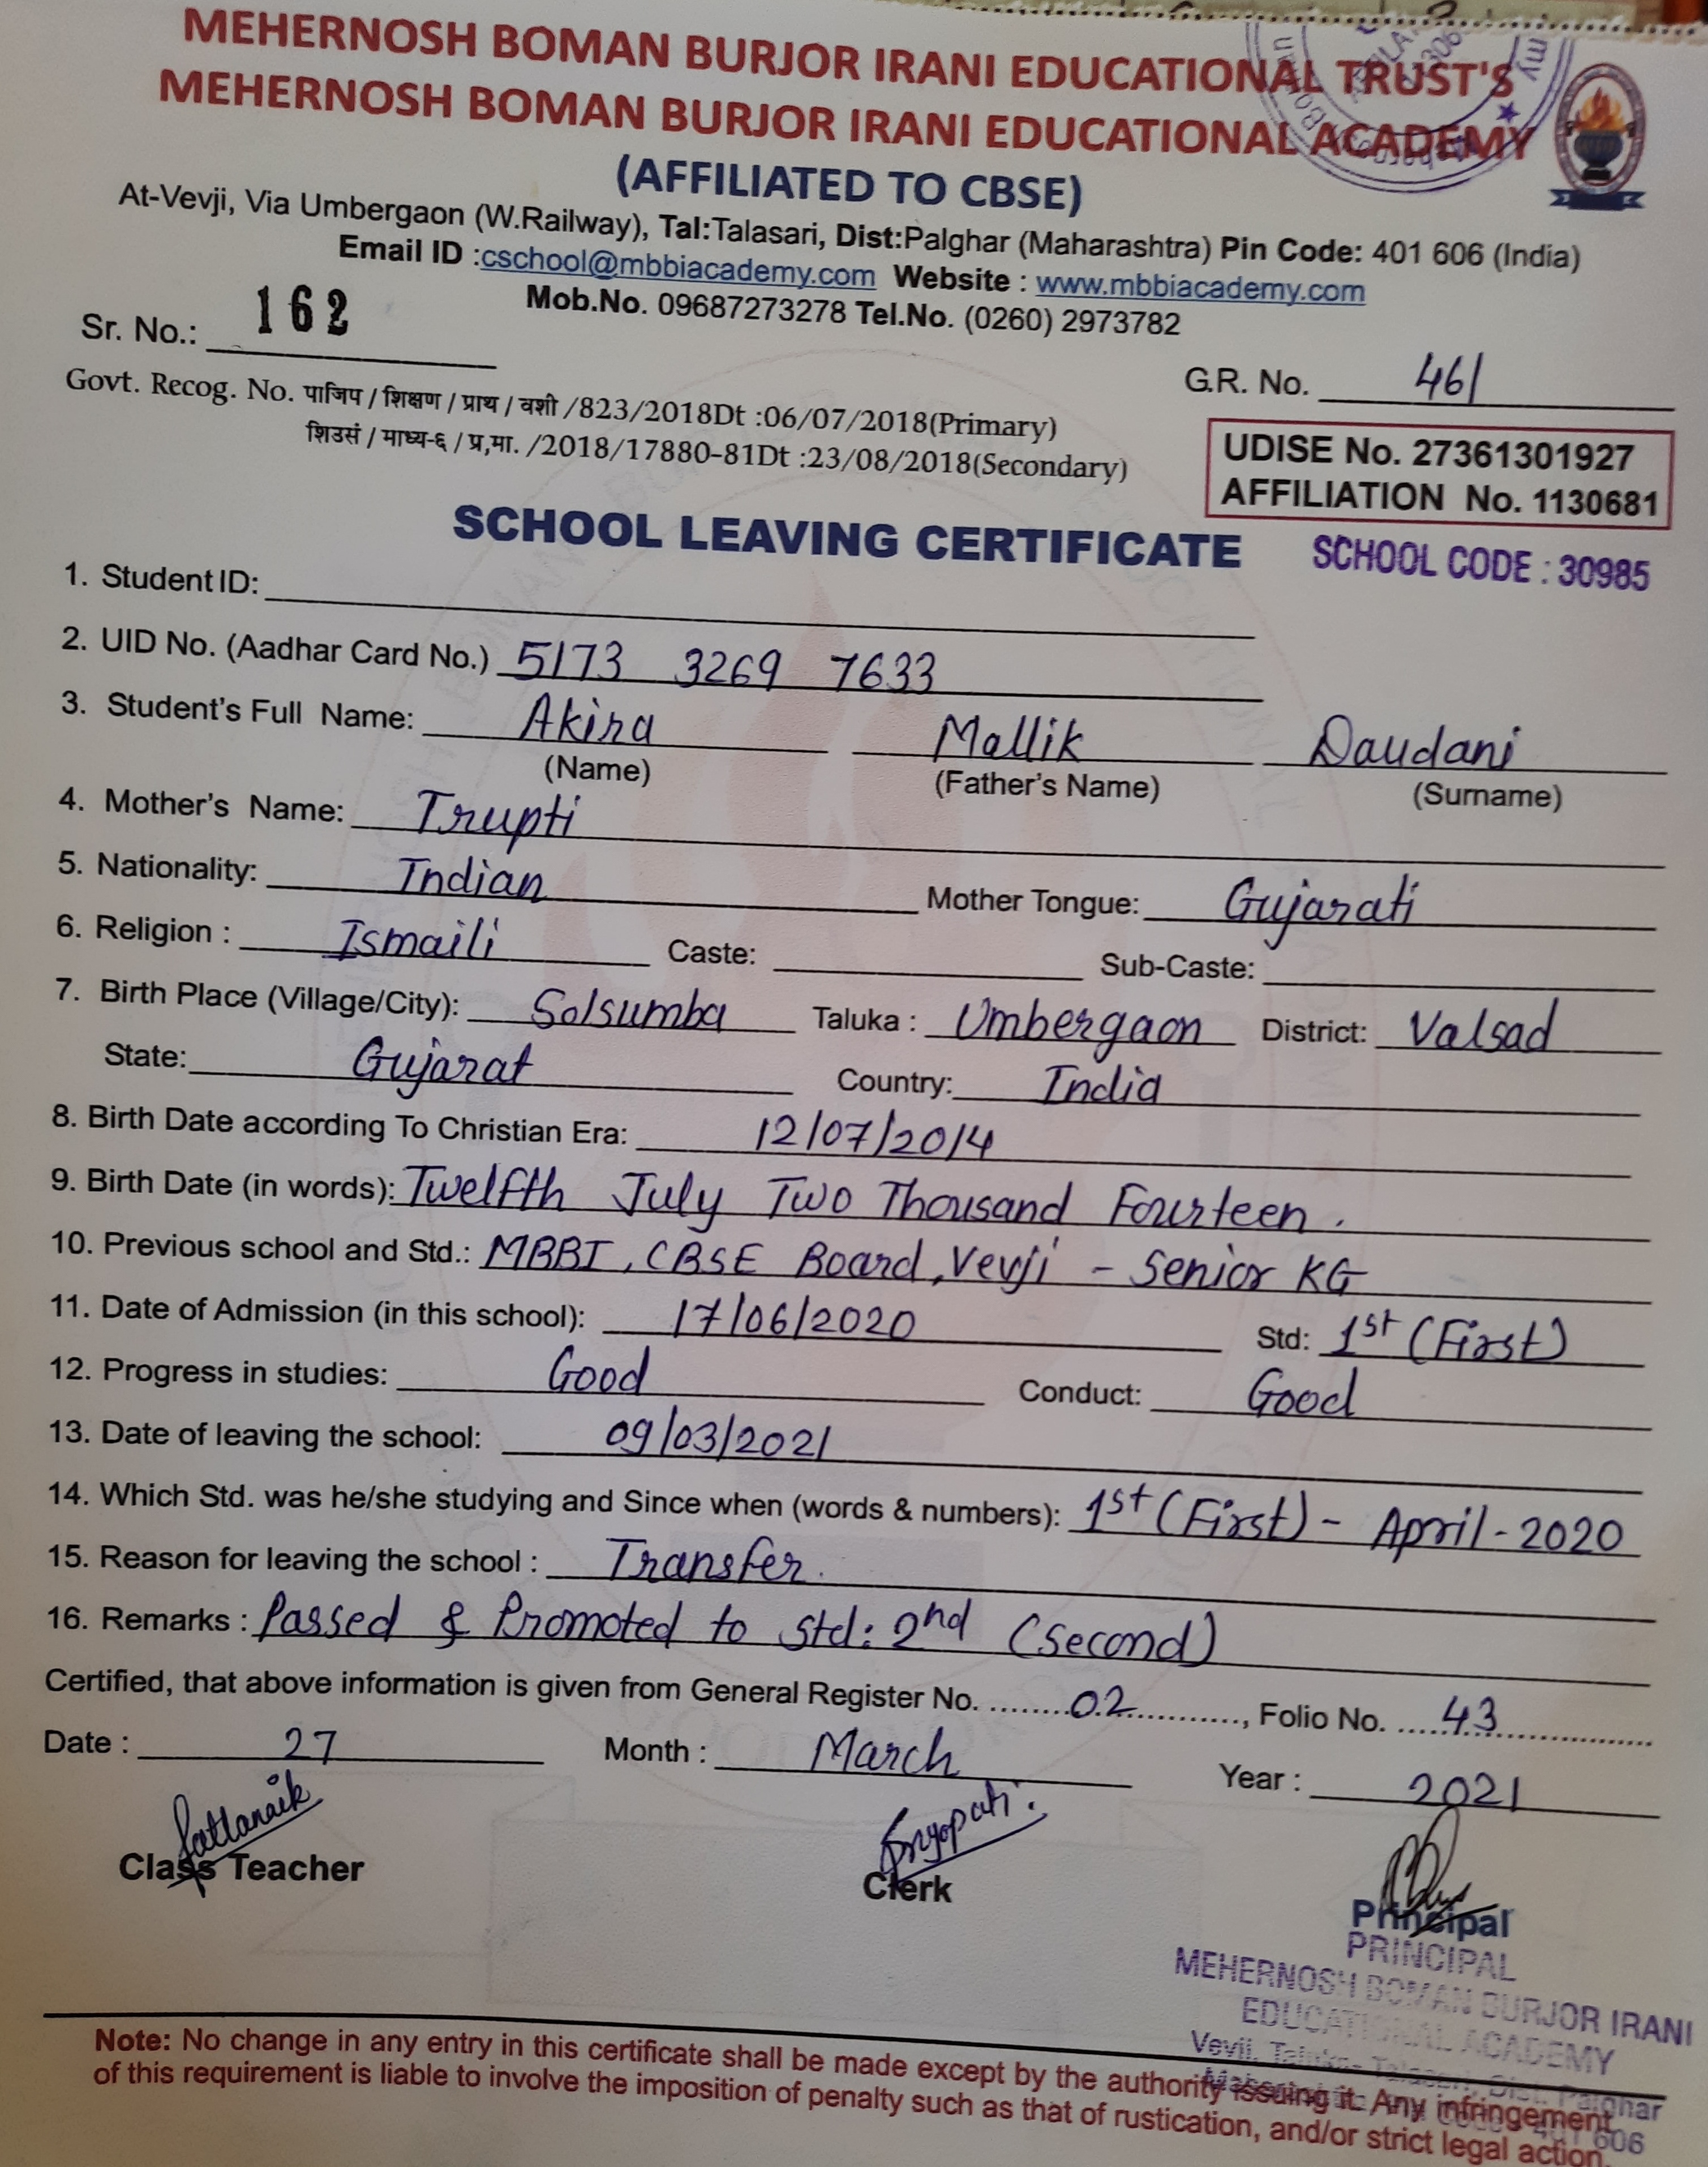 MEHERNOSH BOMAN BURJOR IRANI EDUCATIONAL TRUST'S
MEHERNOSH BOMAN BURJOR IRANI EDUCATIONAL ACADEMY
(AFFILIATED TO CBSE)
At-Vevji, Via Umbergaon (W.Railway), Tal:Talasari, Dist:Palghar (Maharashtra) Pin Code: 401 606 (India)
Email ID :cschool@mbbiacademy.com Website : www.mbbiacademy.com
Mob.No. 09687273278 Tel.No. (0260) 2973782
Sr. No.: 162
G.R. No. 461
Govt. Recog. No. पाजिप / शिक्षण / प्राथ / वशी /823/2018Dt :06/07/2018(Primary)
शिउसं / माध्य-६ / प्र,मा. /2018/17880-81Dt :23/08/2018(Secondary)
UDISE No. 27361301927
AFFILIATION No. 1130681
SCHOOL LEAVING CERTIFICATE
SCHOOL CODE : 30985
1. Student ID:
2. UID No. (Aadhar Card No.) 5173 3269 7633
3. Student's Full Name: Akira Mallik Daudani
(Name) (Father's Name) (Surname)
4. Mother's Name: Trupti
5. Nationality: Indian Mother Tongue: Gujarati
6. Religion : Ismaili Caste: Sub-Caste:
7. Birth Place (Village/City): Solsumba Taluka : Umbergaon District: Valsad
State: Gujarat Country: India
8. Birth Date according To Christian Era: 12/07/2014
9. Birth Date (in words): Twelfth July Two Thousand Fourteen.
10. Previous school and Std.: MBBI, CBSE Board, Vevji - Senior KG
11. Date of Admission (in this school): 17/06/2020 Std: 1st (First)
12. Progress in studies: Good Conduct: Good
13. Date of leaving the school: 09/03/2021
14. Which Std. was he/she studying and Since when (words & numbers): 1st (First) - April - 2020
15. Reason for leaving the school : Transfer.
16. Remarks : Passed & Promoted to std: 2nd (second)
Certified, that above information is given from General Register No. ........02..............., Folio No. .....43....................
Date : 27 Month : March Year : 2021
Class Teacher
Clerk
Principal
PRINCIPAL
MEHERNOSH BOMAN BURJOR IRANI
EDUCATIONAL ACADEMY
Note: No change in any entry in this certificate shall be made except by the authority issuing it. Any infringement
of this requirement is liable to involve the imposition of penalty such as that of rustication, and/or strict legal action.